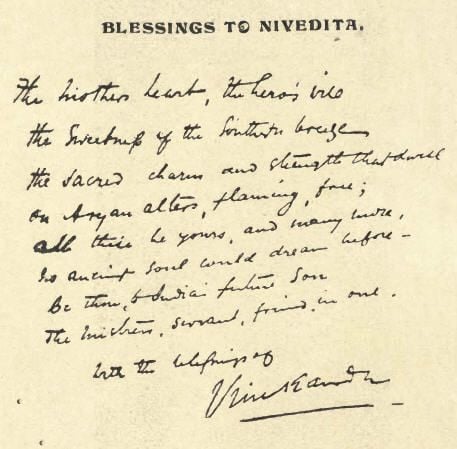 BLESSINGS TO NIVEDITA.
The mothers heart, the hero's will
the sweetness of the southern breeze
the sacred charm and strength that dwell
on Aryan alters, flaming, free;
all these be yours, and many more,
No ancient soul could dream before—
Be thou, to India's future Son
The mistress, servant, friend, in one.
With the blessings of
Vivekananda